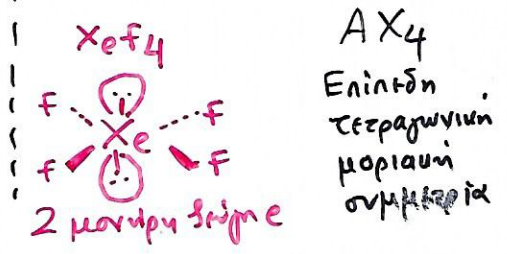 Xef4
F F
Xe
F F
2 μονήρη ζεύγη e
AX4
Επίπεδη
τετραγωνική
μοριακή
συμμετρία